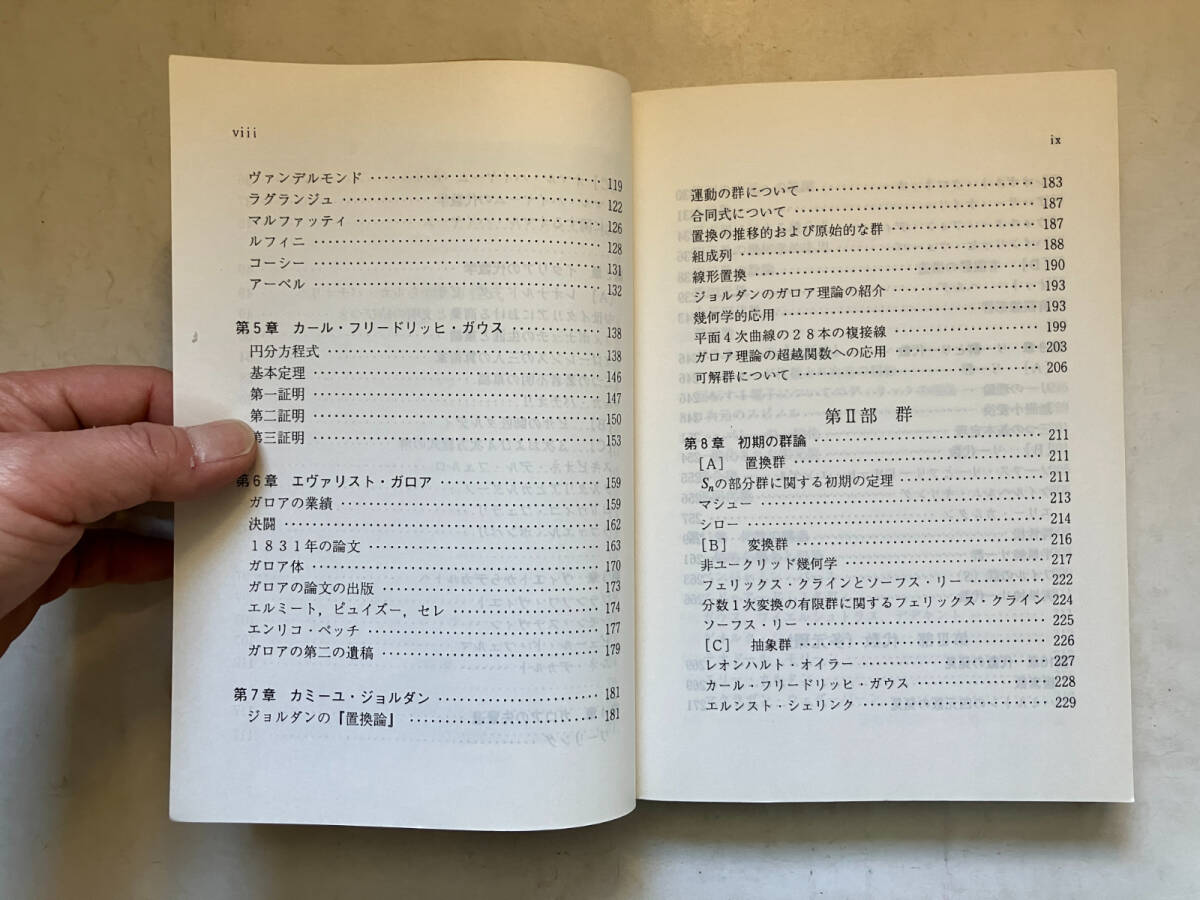 viii
ヴァンデルモンド 119
ラグランジュ 122
マルファッティ 126
ルフィニ 128
コーシー 131
アーベル 132
第5章 カール・フリードリッヒ・ガウス 138
円分方程式 138
基本定理 146
第一証明 147
第二証明 150
第三証明 153
第6章 エヴァリスト・ガロア 159
ガロアの業績 159
決闘 162
1831年の論文 163
ガロア体 170
ガロアの論文の出版 173
エルミート,ピュイズー,セレ 174
エンリコ・ベッチ 177
ガロアの第二の遺稿 179
第7章 カミーユ・ジョルダン 181
ジョルダンの『置換論』 181
ix
運動の群について 183
合同式について 187
置換の推移的および原始的な群 187
組成列 188
線形置換 190
ジョルダンのガロア理論の紹介 193
幾何学的応用 193
平面4次曲線の28本の複接線 199
ガロア理論の超越関数への応用 203
可解群について 206
第II部 群
第8章 初期の群論 211
[A] 置換群 211
Snの部分群に関する初期の定理 211
マシュー 213
シロー 214
[B] 変換群 216
非ユークリッド幾何学 217
フェリックス・クラインとソーフス・リー 222
分数1次変換の有限群に関するフェリックス・クライン 224
ソーフス・リー 225
[C] 抽象群 226
レオンハルト・オイラー 227
カール・フリードリッヒ・ガウス 228
エルンスト・シェリンク 229